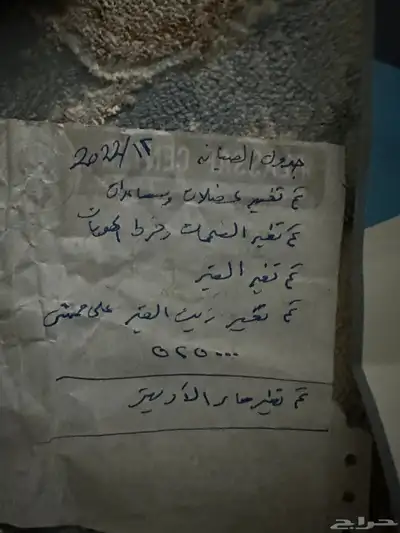 جدول الصيانه 2022/12
تم تغيير عضلات ومساعدات
تم تغير الصحمات وخرط الهوبات
تم تغير القير
تم تغيير زيت القير على ممشى
٥٢٥٠٠٠
تم تغيير ماء الأديتر
حراج